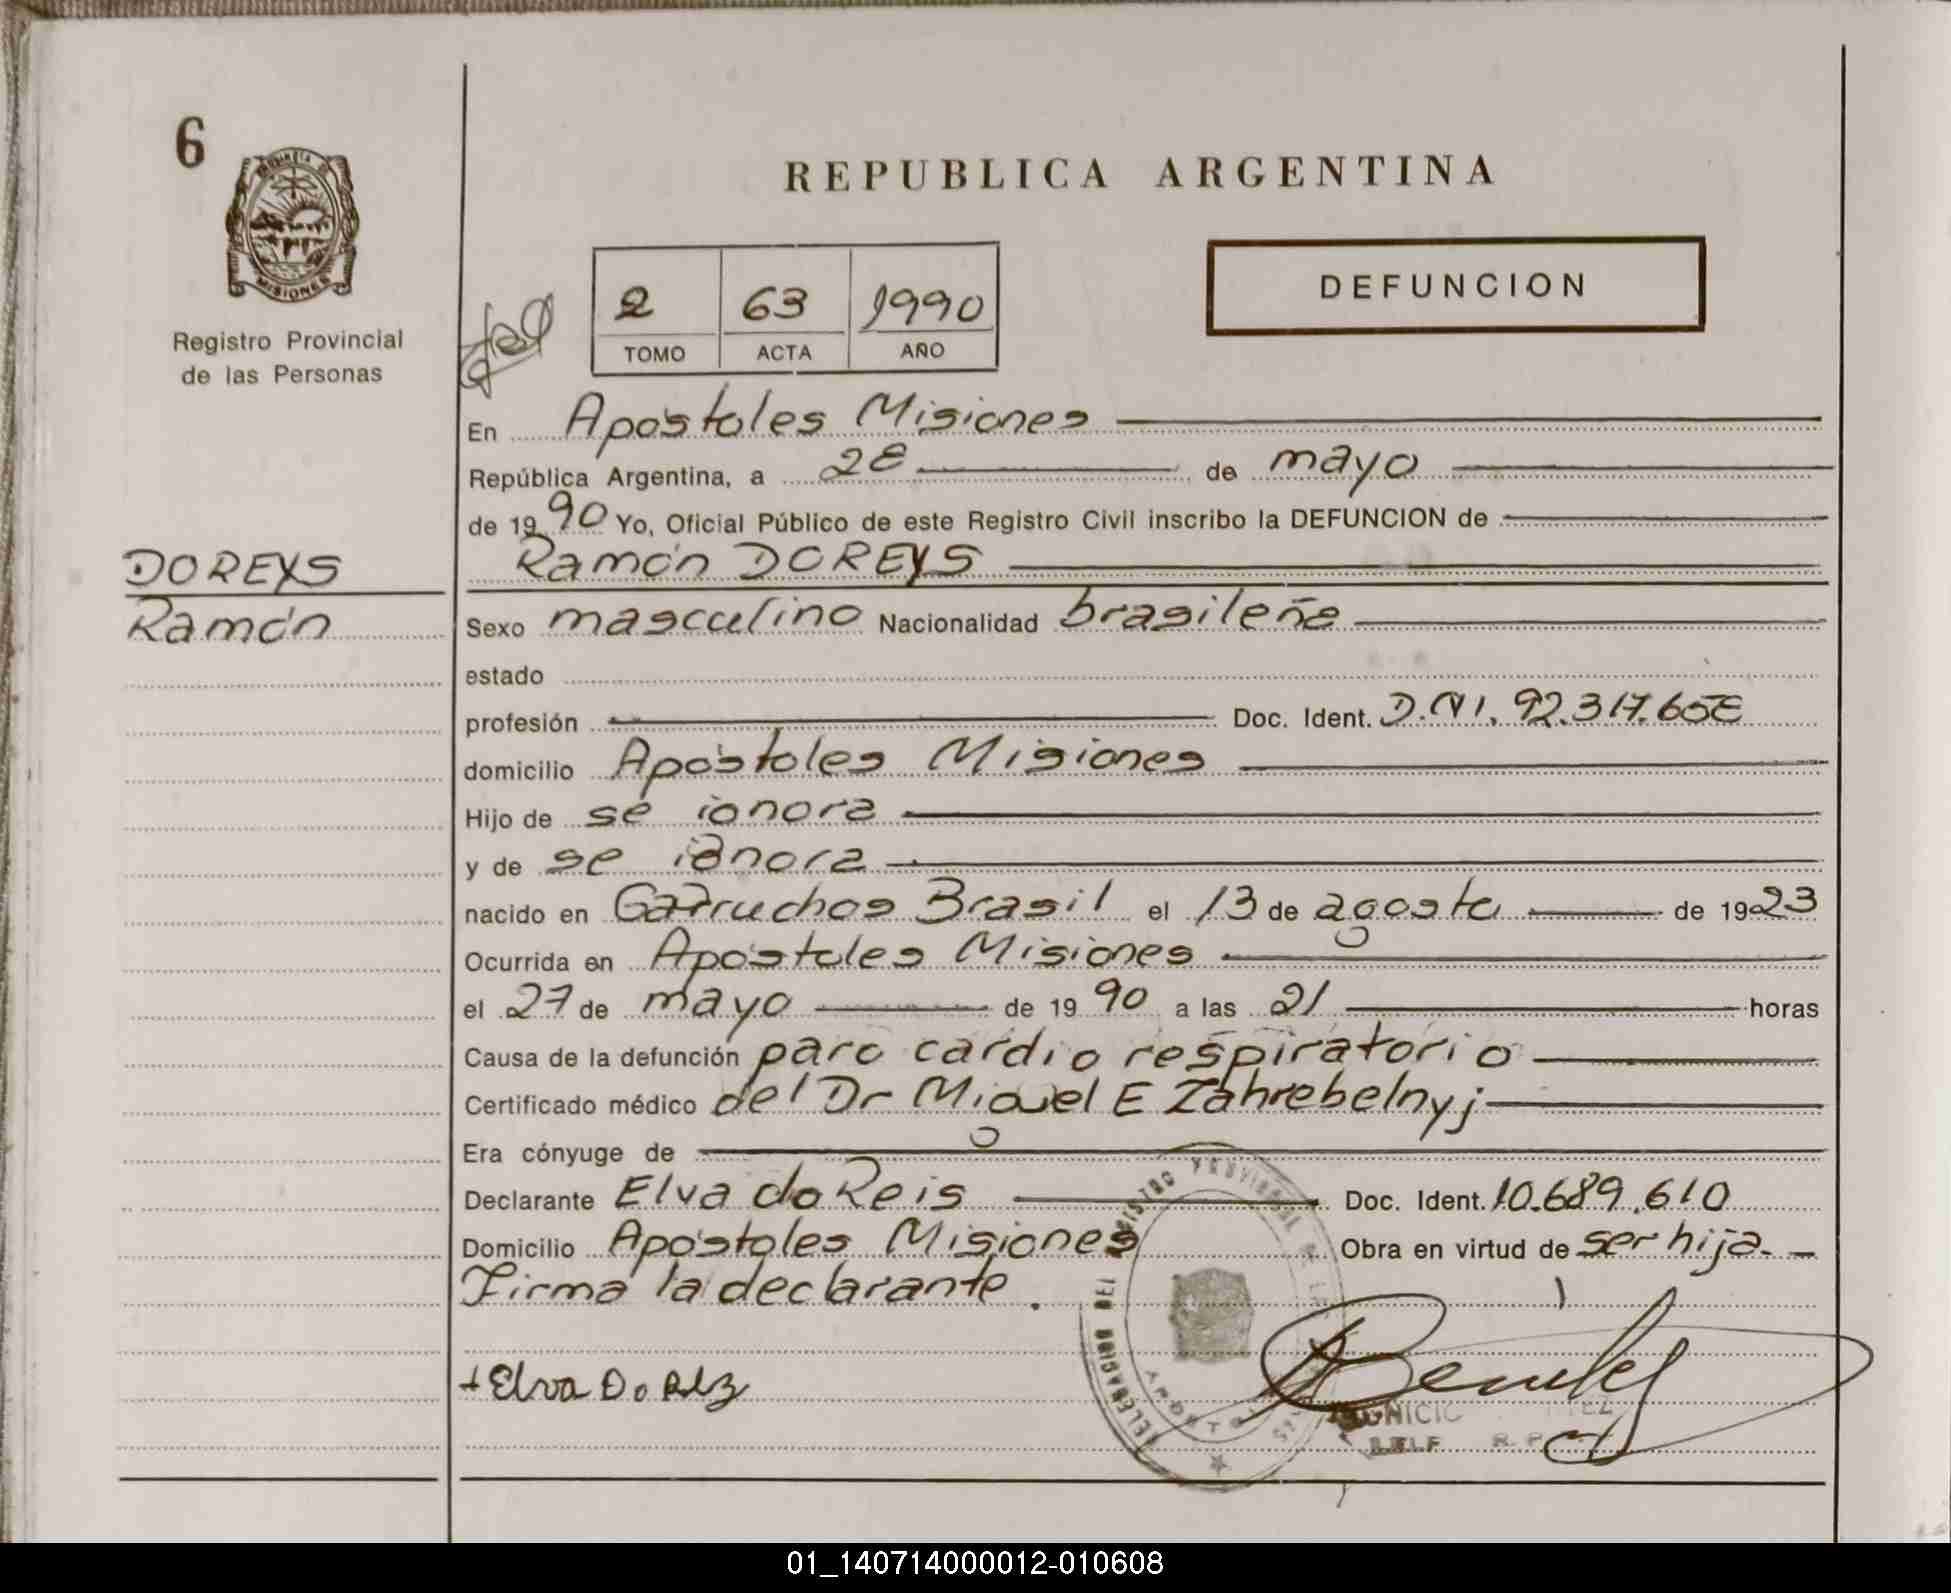 6
PROVINCIA DE
MISIONES
Registro Provincial
de las Personas
REPUBLICA ARGENTINA
2 63 1990
TOMO ACTA AÑO
DEFUNCION
En Apóstoles Misiones
República Argentina, a 28 de mayo
de 1990 Yo, Oficial Público de este Registro Civil inscribo la DEFUNCION de
DOREYS
Ramón DOREYS
Ramón
Sexo masculino Nacionalidad brasileña
estado
profesión Doc. Ident. D.N.I. 92.317.658
domicilio Apóstoles Misiones
Hijo de se ignora
y de se ignora
nacido en Garruchos Brasil el 13 de agosto de 1923
Ocurrida en Apóstoles Misiones
el 27 de mayo de 1990 a las 21 horas
Causa de la defunción paro cardio respiratorio
Certificado médico del Dr Miguel E Zahrebelnyj
Era cónyuge de
Declarante Elva do Reis Doc. Ident. 10.689.610
Domicilio Apóstoles Misiones Obra en virtud de ser hija.
Firma la declarante.
Elva Do
01_140714000012-010608